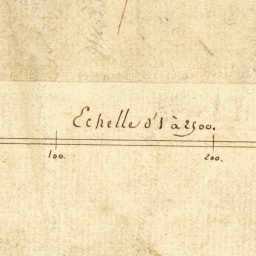 Echelle d'1 à 2500.
100. 200.